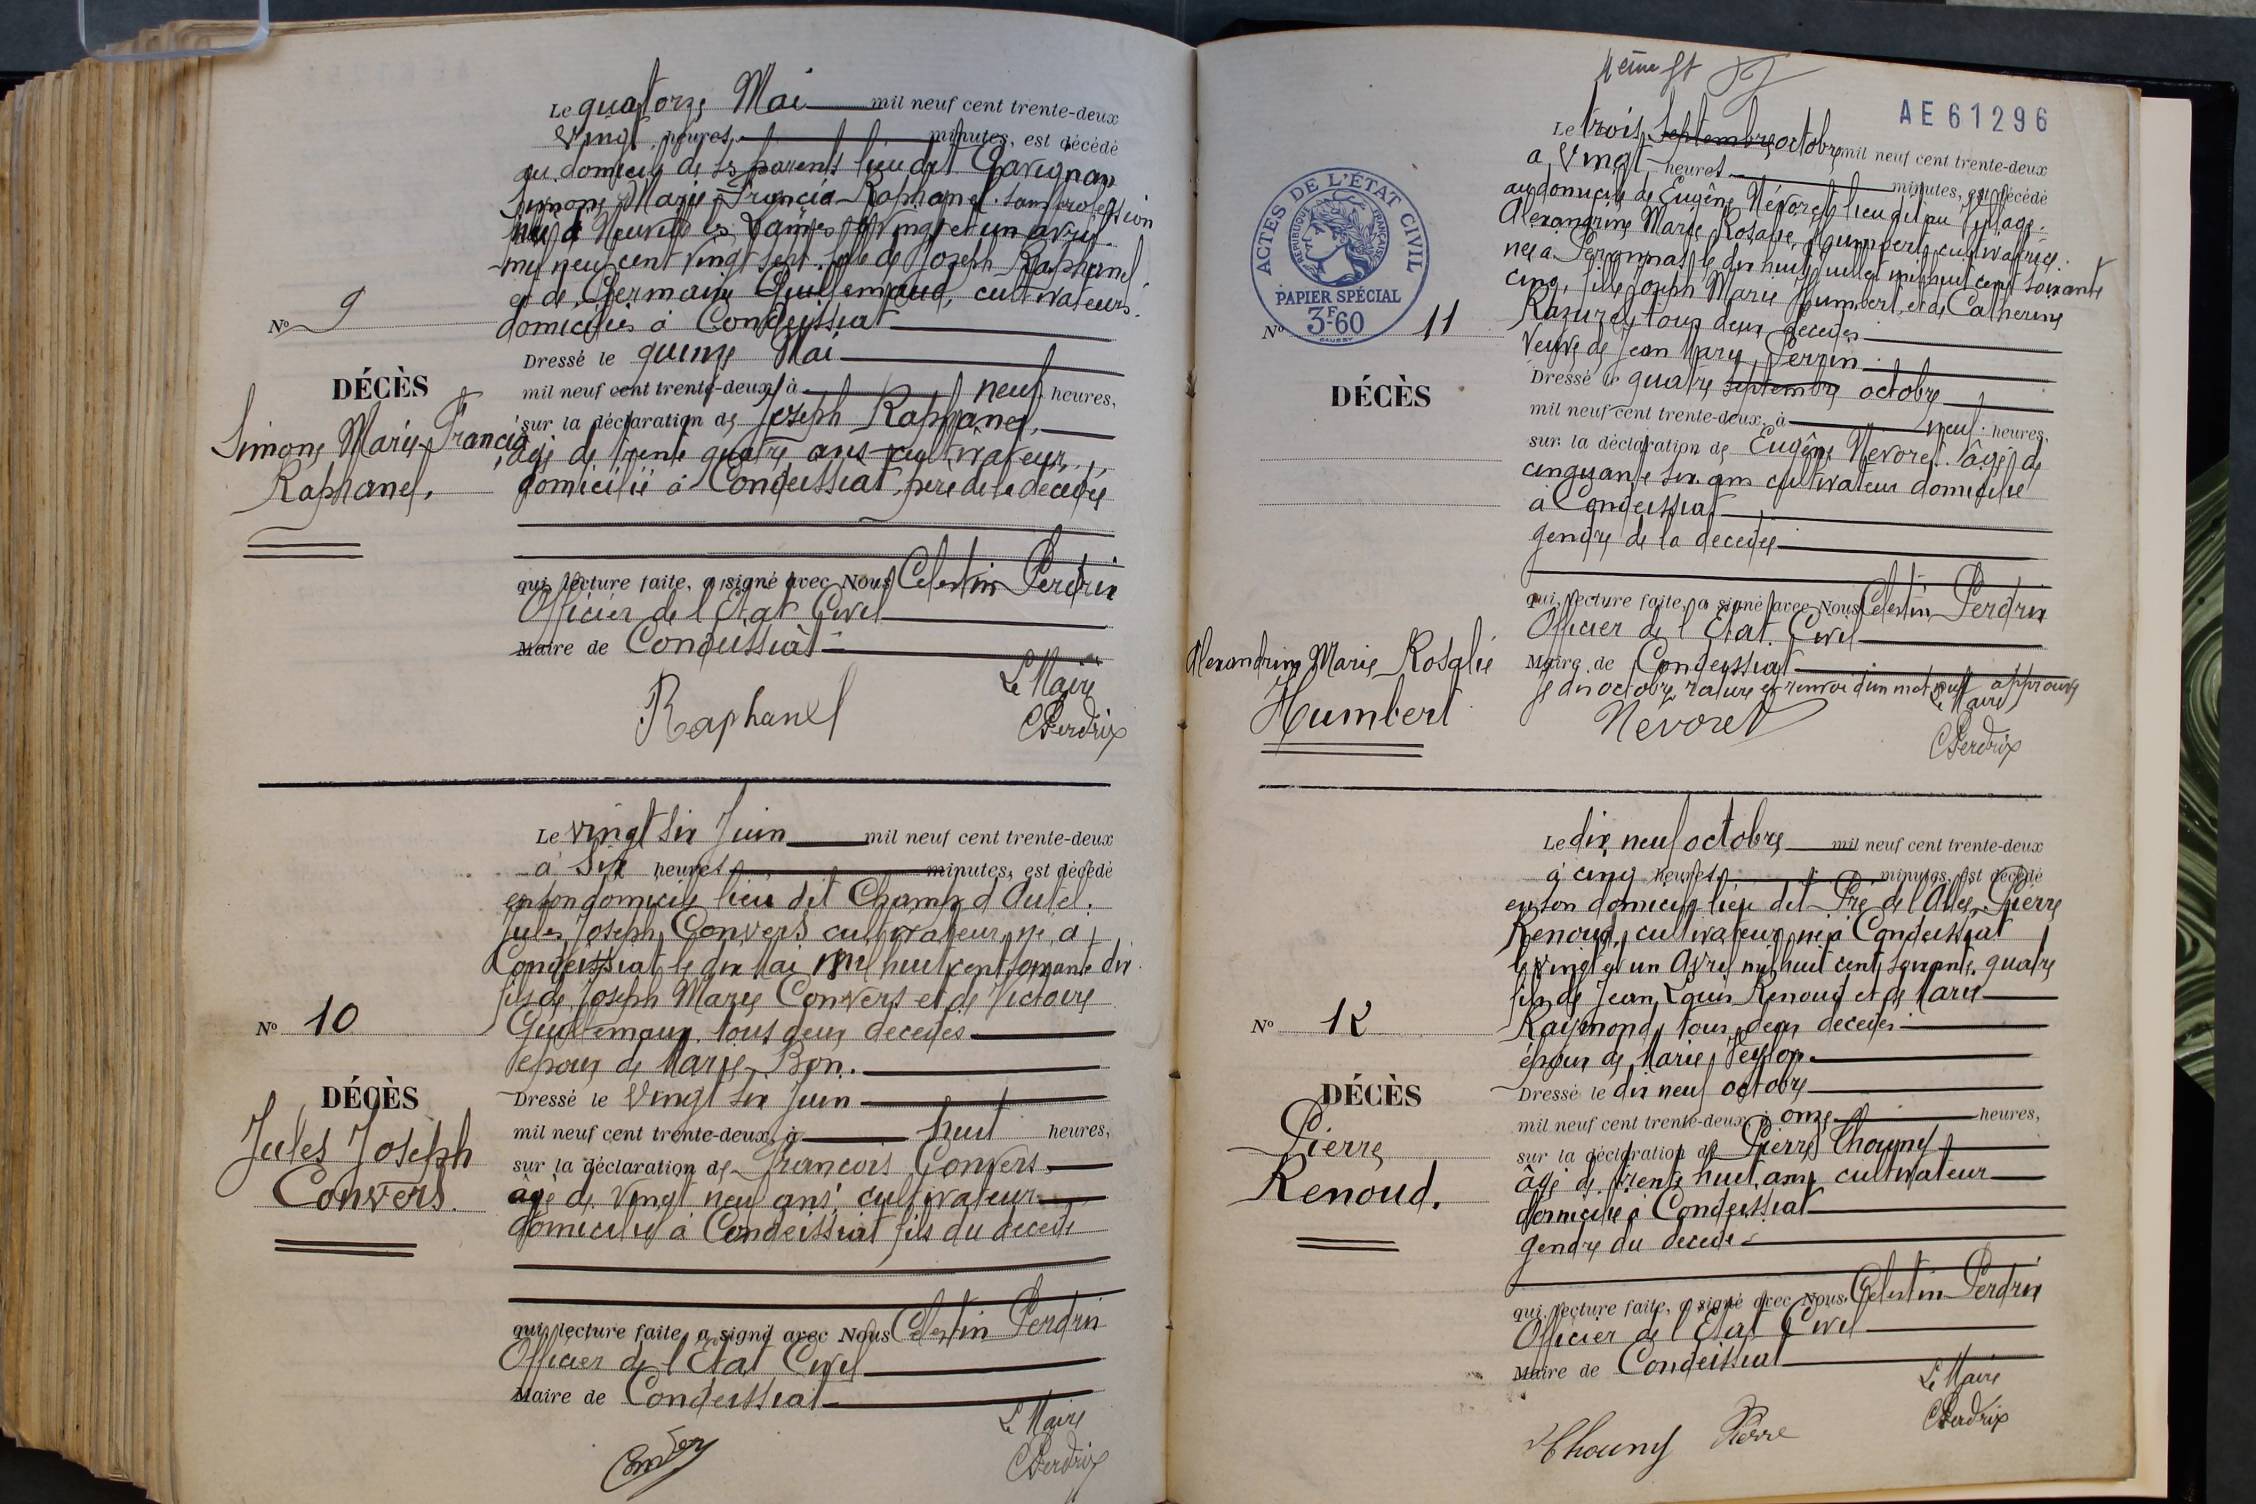 Le quatorze Mai mil neuf cent trente-deux
vingt heures minutes, est décédé
au domicile de ses parents lieu dit Gavignan
Simone Marie-Francia Raphanel. sans profession
les et vingt et un avril
mil neuf cent vingt sept. fille de Joseph Raphanel
et de Germaine Guillemaud, cultivateurs.
domiciliés à Condeissiat
Nº 9
Dressé le quinze Mai
DÉCÈS
mil neuf cent trente-deux, à neuf heures,
sur la déclaration de Joseph Raphanel,
Simone Marie-Francia
âgé de trente quatre ans cultivateur,
Raphanel.
domicilié à Condeissiat, père de la décédée
qui, lecture faite, a signé avec Nous Celestin Perdrix
Officier de l'Etat Civil
Maire de Condeissiat
Le Maire
Raphanel
CPerdrix
Le vingt six Juin mil neuf cent trente-deux
à six heures minutes, est décédé
en son domicile lieu dit Champ d'Autel.
Jules Joseph Convers cultivateur, né à
Condeissiat le dix Mai mil huit cent soixante dix
fils de Joseph Marie Convers et de Victoire
Nº 10
Guillemaux tous deux decedes
époux de Marie Bon.
DÉCÈS
Dressé le vingt six Juin
mil neuf cent trente-deux, à huit heures,
Jules Joseph
sur la déclaration de Francois Convers
Convers.
âgé de vingt neuf ans, cultivateur
domicilié à Condeissiat fils du decede
qui, lecture faite, a signé avec Nous Celestin Perdrix
Officier de l'Etat Civil
Maire de Condeissiat
Le Maire
CPerdrix
AE61296
Le trois septembre octobre mil neuf cent trente-deux
a vingt heures minutes, est décédé
au domicile de Eugène Névoret lieu dit au Village.
Alexandrine Marie Rosalie Humbert, cultivatrice.
née à Peronnas le dix huit juillet mil huit cent soixante
cinq, fille Joseph Marie Humbert et de Catherine
tous deux decedes
Veuve de Jean Marie Perrin.
ACTES DE L'ÉTAT CIVIL
REPUBLIQUE FRANÇAISE
PAPIER SPÉCIAL
3F60
Nº 11
DÉCÈS
Dressé le quatre septembre octobre
mil neuf cent trente-deux, à neuf heures,
sur la déclaration de Eugène Nevoret. âgé de
cinquante six ans cultivateur domicilié
a Condeissiat
gendre de la decedée
qui, lecture faite, a signé avec Nous Celestin Perdrix
Officier de l'Etat Civil
Alexandrine Marie Rosalie
Humbert
Maire de Condeissiat
octobre, rature et renvoi d'un mot nul approuvé
Le Maire
Nevoret
CPerdrix
Le dix neuf octobre mil neuf cent trente-deux
à cinq heures minutes, est décédé
en son domicile lieu dit Pré de l'Allée. Pierre
Renoud, cultivateur, né à Condeissiat
le vingt et un Avril mil huit cent soixante quatre
fils de Jean Louis Renoud et de Marie
Nº 12
Raymond, tous deux decedes
époux de Marie
DÉCÈS
Dressé le dix neuf octobre
mil neuf cent trente-deux, à onze heures,
Pierre
Renoud.
sur la déclaration de Pierre Thouny
âgé de trente huit ans cultivateur
domicilié à Condeissiat
gendre du decede
qui, lecture faite, a signé avec Nous Celestin Perdrix
Officier de l'Etat Civil
Maire de Condeissiat
Le Maire
CPerdrix
Thouny Pierre